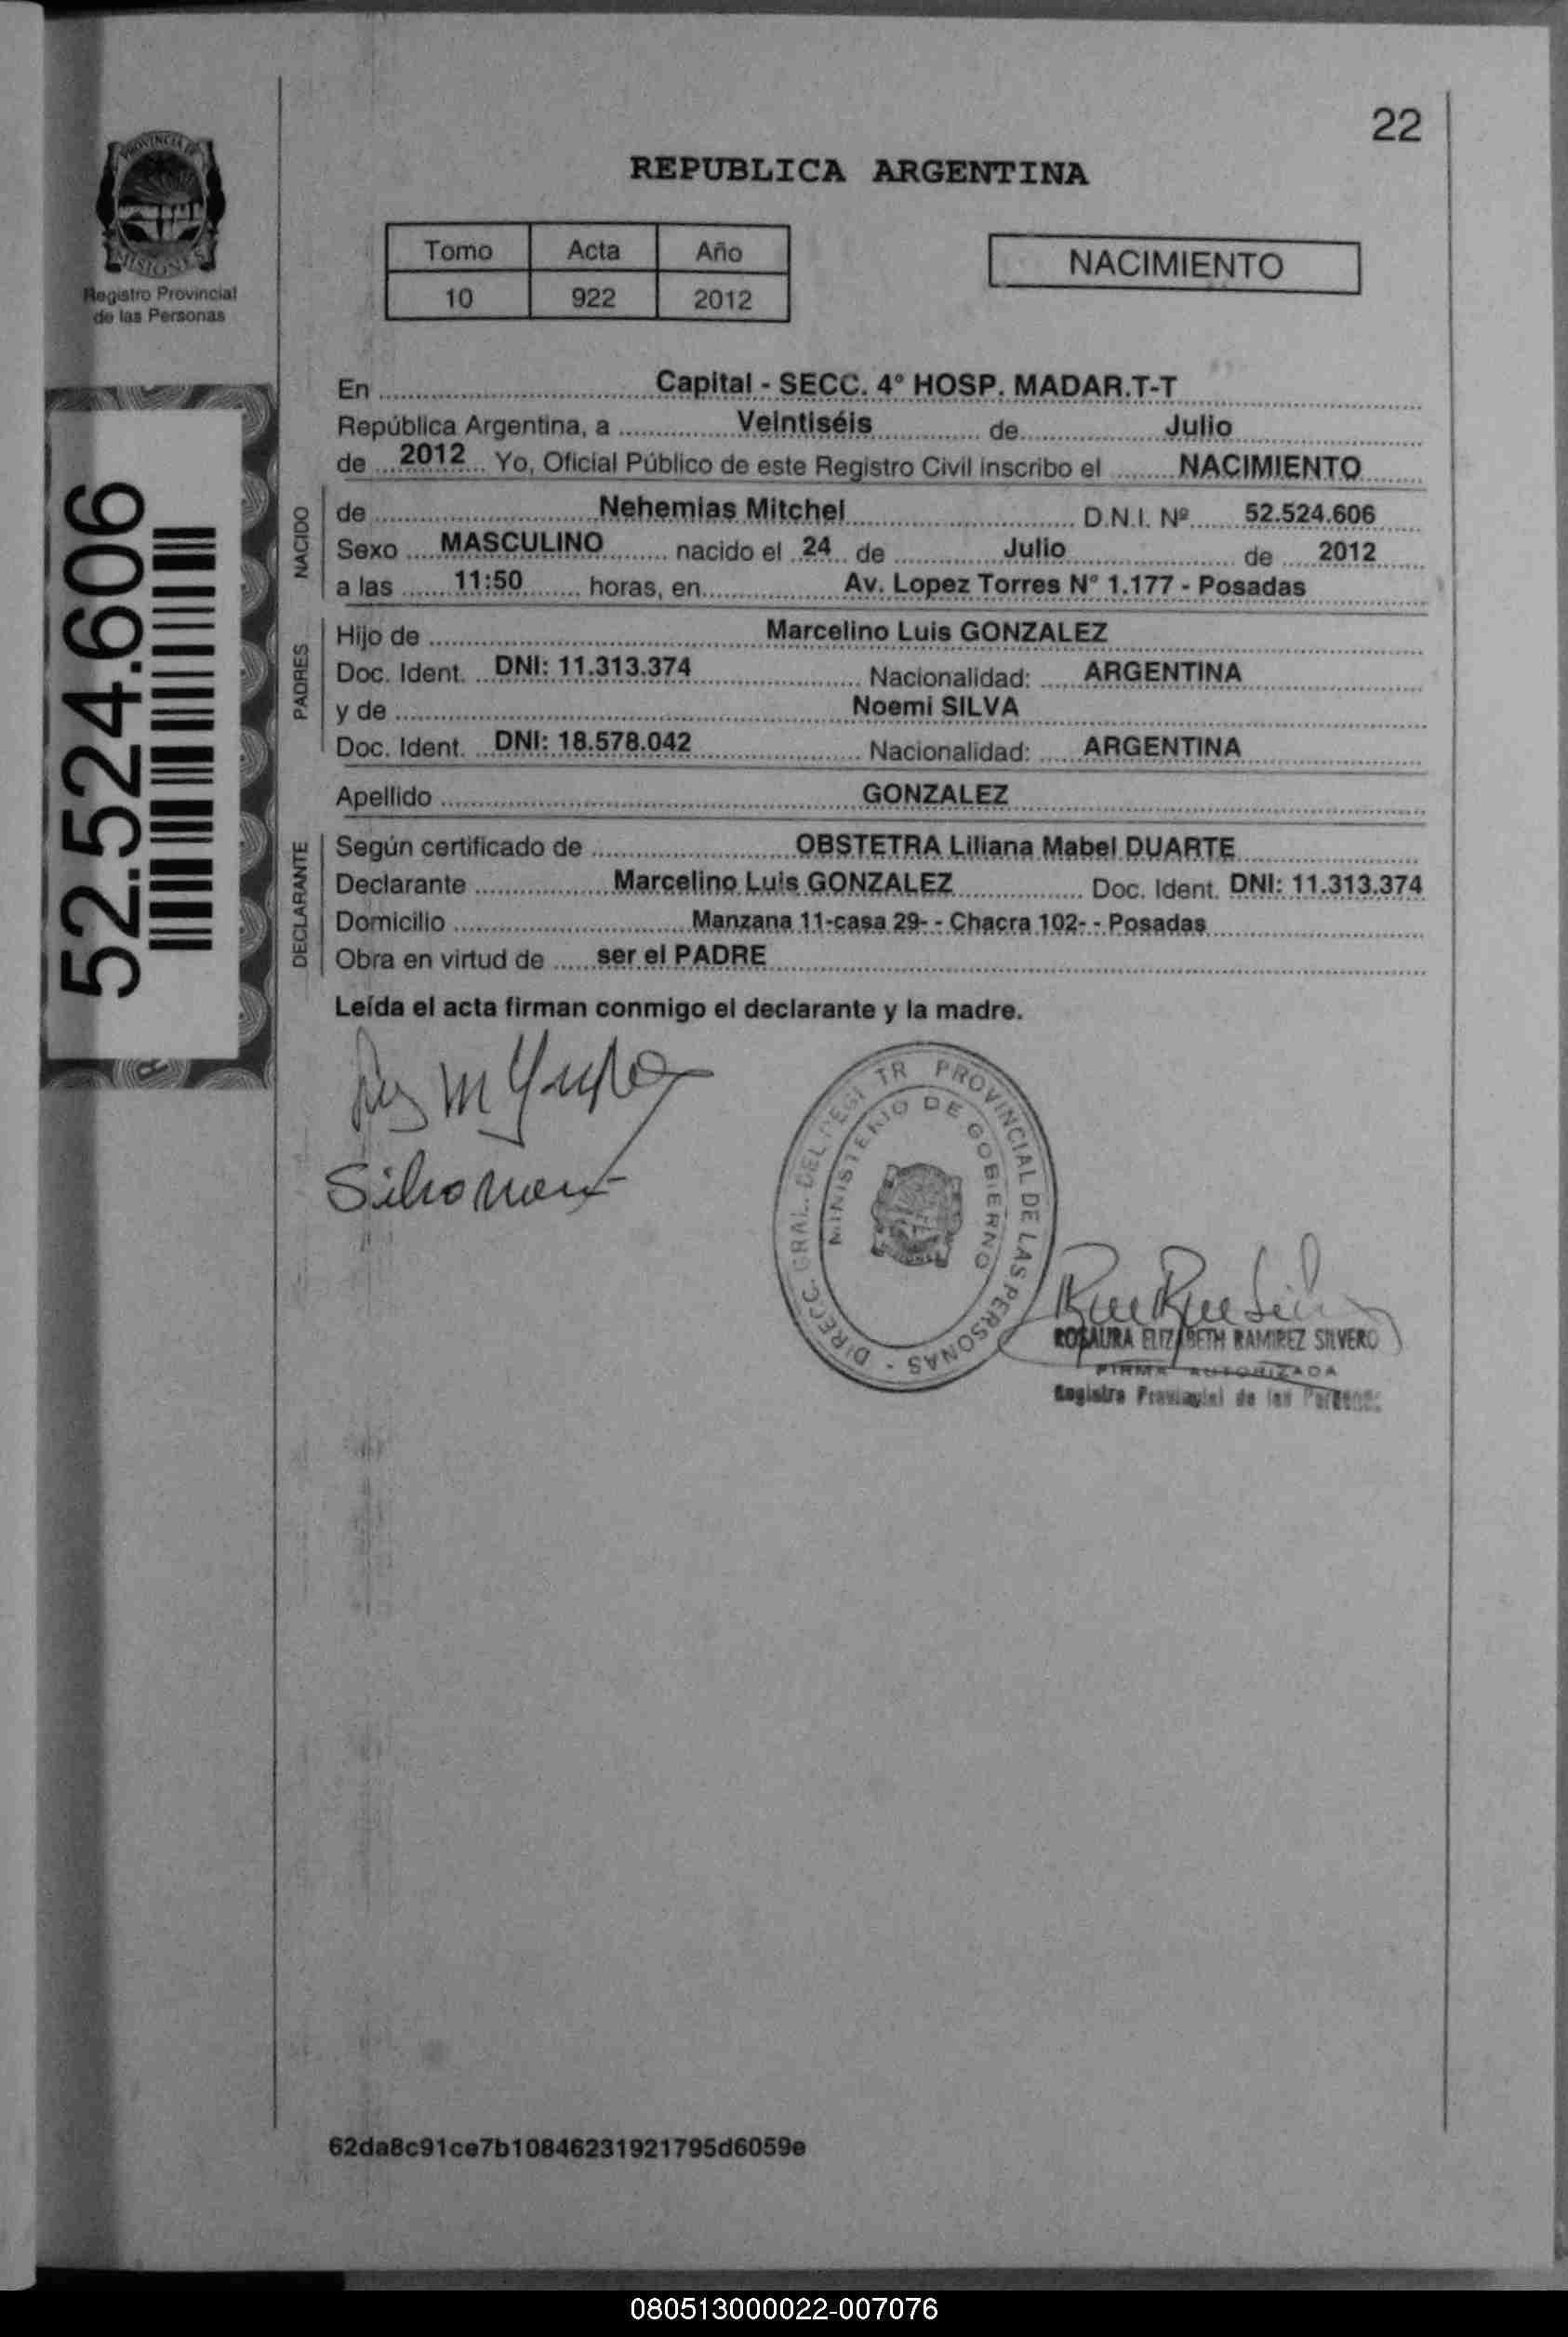 22
PROVINCIA DE
MISIONES
Registro Provincial
de las Personas
REPUBLICA ARGENTINA
Tomo Acta Año
10 922 2012
NACIMIENTO
52.524.606
En Capital - SECC. 4° HOSP. MADAR.T-T
República Argentina, a Veintiséis de Julio
de 2012 Yo, Oficial Público de este Registro Civil inscribo el NACIMIENTO
NACIDO
de Nehemias Mitchel D.N.I. Nº 52.524.606
Sexo MASCULINO nacido el 24 de Julio de 2012
a las 11:50 horas, en Av. Lopez Torres N° 1.177 - Posadas
PADRES
Hijo de Marcelino Luis GONZALEZ
Doc. Ident. DNI: 11.313.374 Nacionalidad: ARGENTINA
y de Noemi SILVA
Doc. Ident. DNI: 18.578.042 Nacionalidad: ARGENTINA
Apellido GONZALEZ
DECLARANTE
Según certificado de OBSTETRA Liliana Mabel DUARTE
Declarante Marcelino Luis GONZALEZ Doc. Ident. DNI: 11.313.374
Domicilio Manzana 11-casa 29- - Chacra 102- - Posadas
Obra en virtud de ser el PADRE
Leída el acta firman conmigo el declarante y la madre.
DIRECC. GRAL. DEL REGISTR PROVINCIAL DE LAS PERSONAS -
MINISTERIO DE GOBIERNO
ROSAURA ELIZABETH RAMIREZ SILVERO
FIRMA AUTORIZADA
Registro Provincial de las Personas
62da8c91ce7b10846231921795d6059e
080513000022-007076